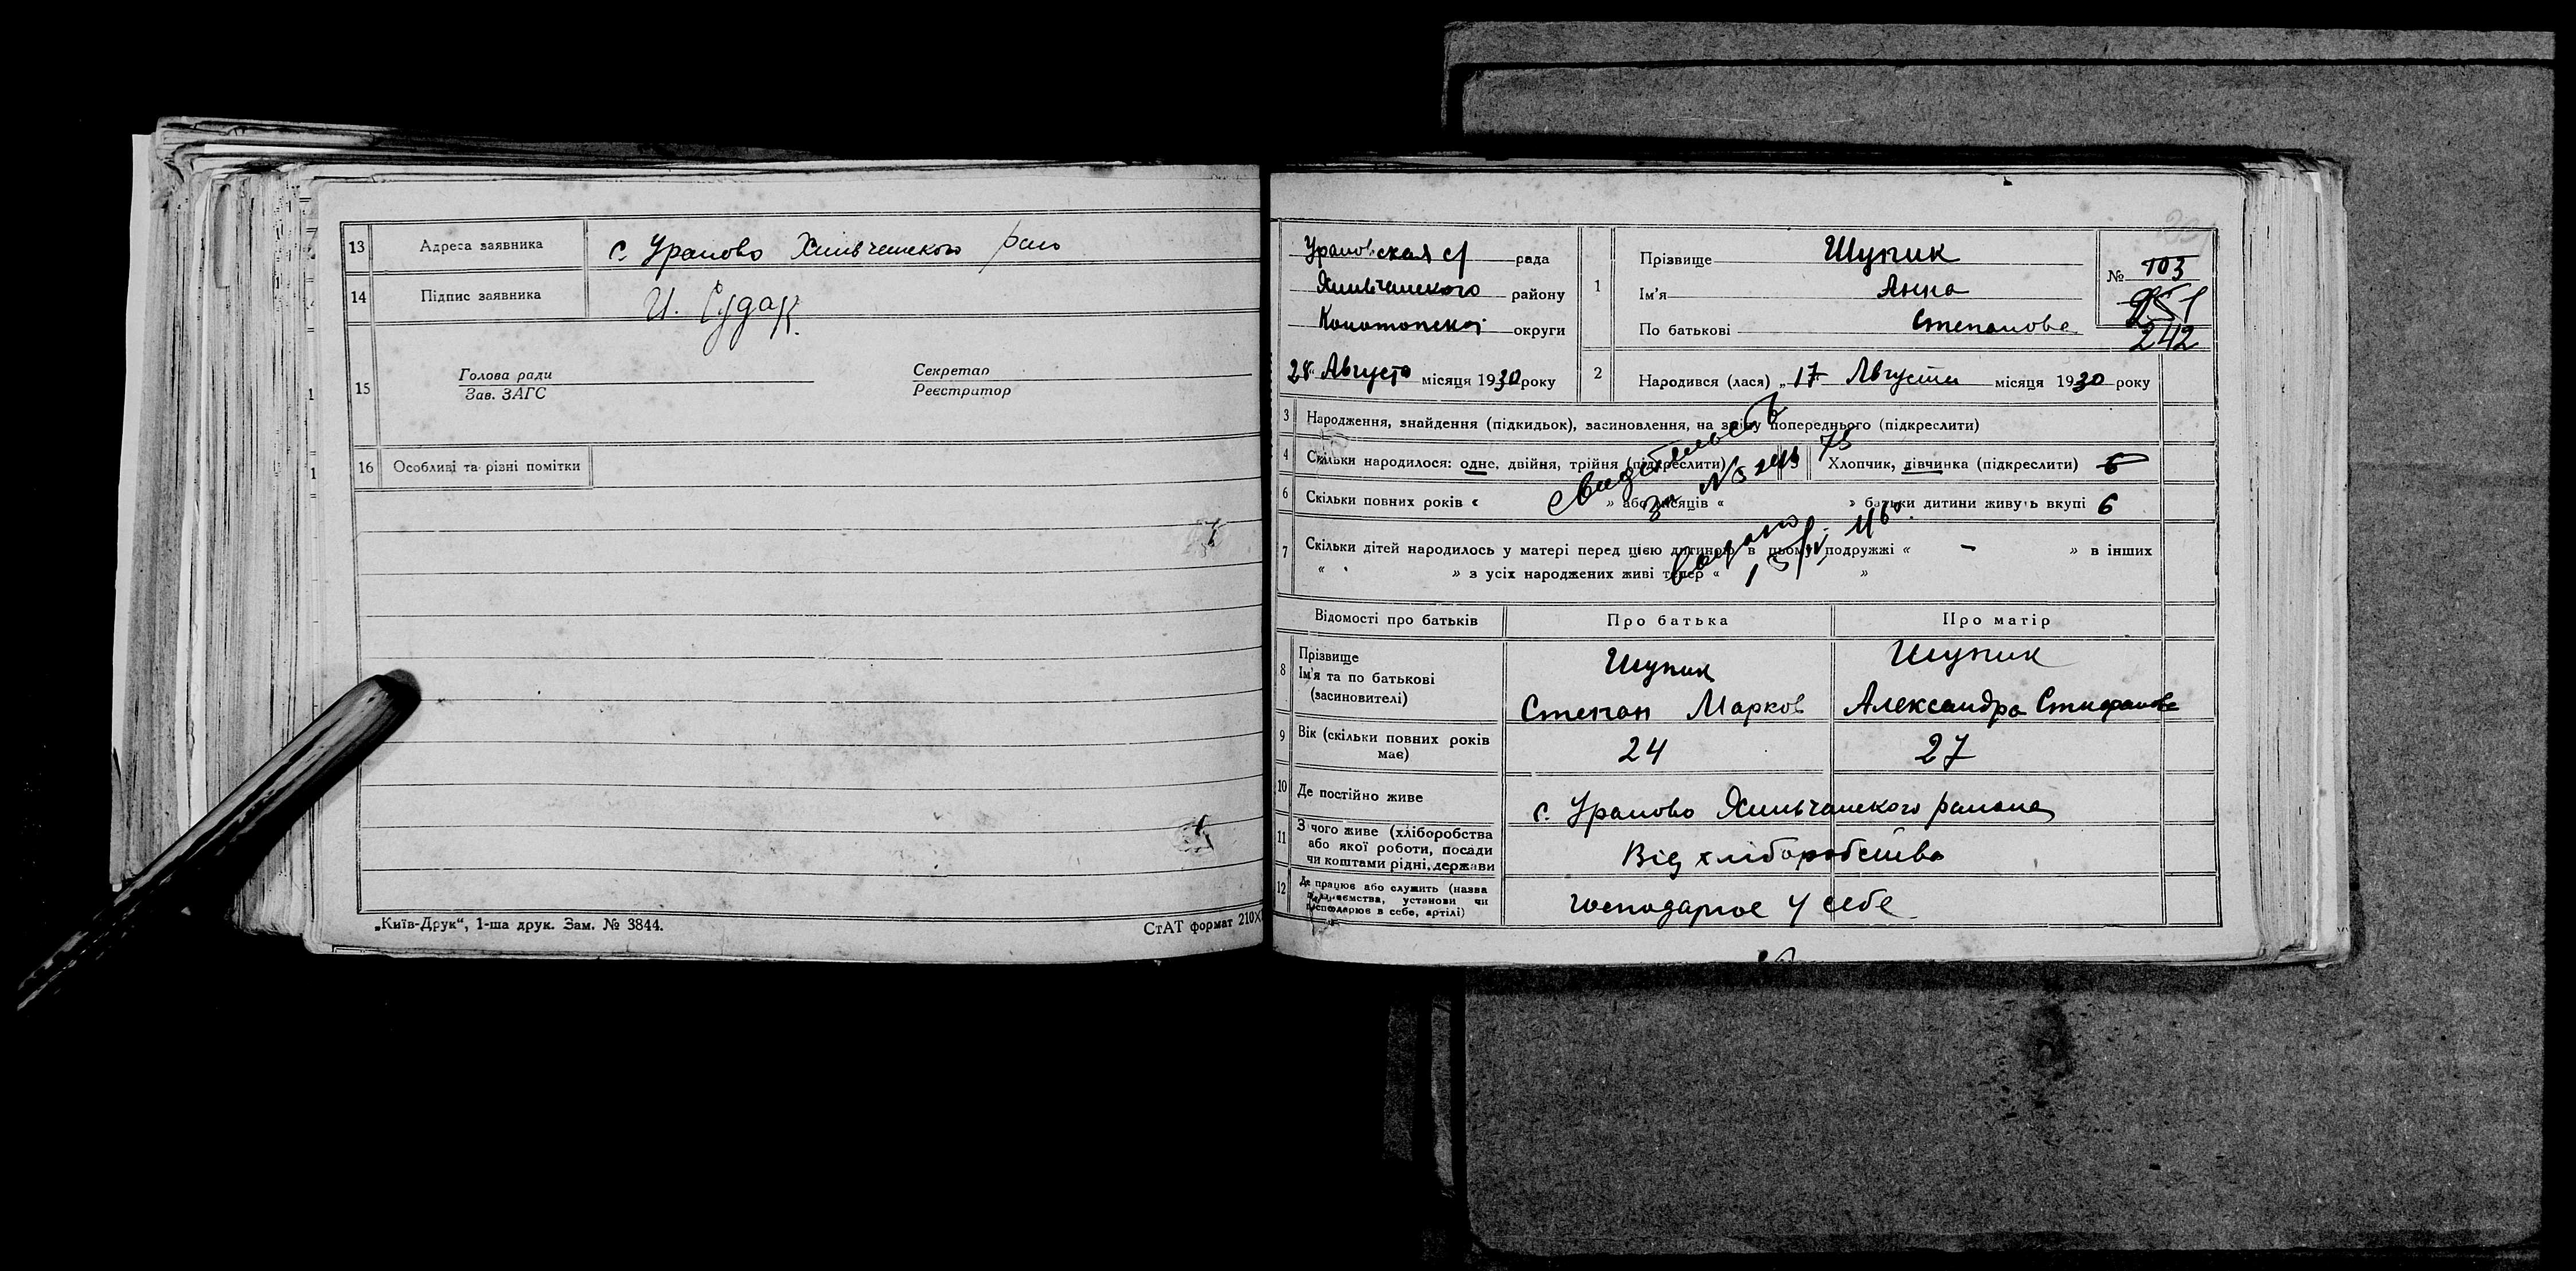 13 Адреса заявника с. Урапово Хмильчанского рай
14 Підпис заявника И. Судак.
15 Голова ради
Зав. ЗАГС
Секретар
Реєстратор
16 Особливі та різні помітки
„Київ-Друк“, 1-ша друк. Зам. № 3844.
СтАТ формат 210X
рада
району
округи
28 Августа місяця 1930 року
1 Прізвище Шупик
Ім'я Анна
По батькові Степанова
№ 103
251
242
2 Народився (лася) „17“ Августа місяця 1930 року
3 Народження, знайдення (підкидьок), засиновлення, на зміну попереднього (підкреслити)
4 Скільки народилося: одне, двійня, трійня (підкреслити)
Хлопчик, дівчинка (підкреслити) 5
6 Скільки повних років « » або місяців « » батьки дитини живуть вкупі 6
7 Скільки дітей народилось у матері перед цією дитиною в цьому подружжі « — » в інших
« » з усіх народжених живі тепер « »
Свидетельство
за №
Відомості про батьків Про батька Про матір
8 Прізвище
Ім'я та по батькові
(засновителі)
Шупик
Степан Марков
Шупик
Александра
9 Вік (скільки повних років має) 24 27
10 Де постійно живе с. Урапово
11 З чого живе (хліборобства
або якої роботи, посади
чи коштами рідні, держави
Від хліборобства
12 Де працює або служить (назва
підприємства, установи чи
господарює в себе, артілі)
господарює у себе